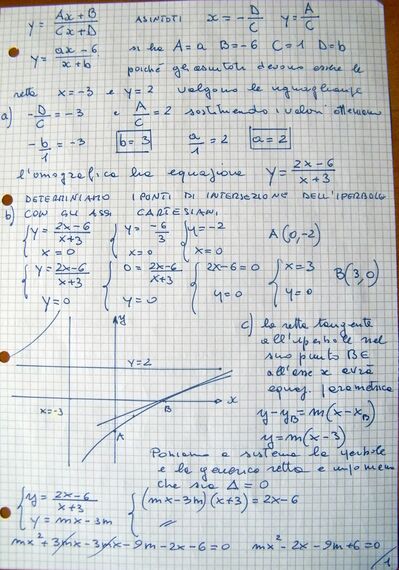 y = Ax+B / Cx+D ASINTOTI x = -D/C y = A/C
y = ax-6 / x+b si ha A=a B=-6 C=1 D=b
poiché gli asintoti devono essere le
rette x=-3 e y=2 valgono le uguaglianze
a) -D/C = -3 e A/C = 2 sostituendo i valori otteniamo
-b/1 = -3 b=3 a/1 = 2 a=2
l'omografica ha equazione y = 2x-6 / x+3
DETERMINIAMO I PONTI DI INTERSEZIONE DELL'IPERBOLE
b) CON GLI ASSI CARTESIANI
{ y = 2x-6 / x+3 { y = -6/3 { y=-2 A(0,-2)
x=0 x=0 x=0
{ y = 2x-6 / x+3 { 0 = 2x-6 / x+3 { 2x-6=0 { x=3 B(3,0)
y=0 y=0 y=0 y=0
y
y=2
x=-3
B
x
A
c) la retta tangente
all'iperbole nel
suo punto B ∈
all'asse x avrà
equaz. parametrica
y-yB = m(x-xB)
y = m(x-3)
Poniamo a sistema la iperbole
e la generica retta e imponiamo
che sia Δ=0
{ y = 2x-6 / x+3 { (mx-3m)(x+3) = 2x-6
y = mx-3m //
mx²+3mx-3mx-9m-2x-6=0 mx²-2x-9m+6=0
1